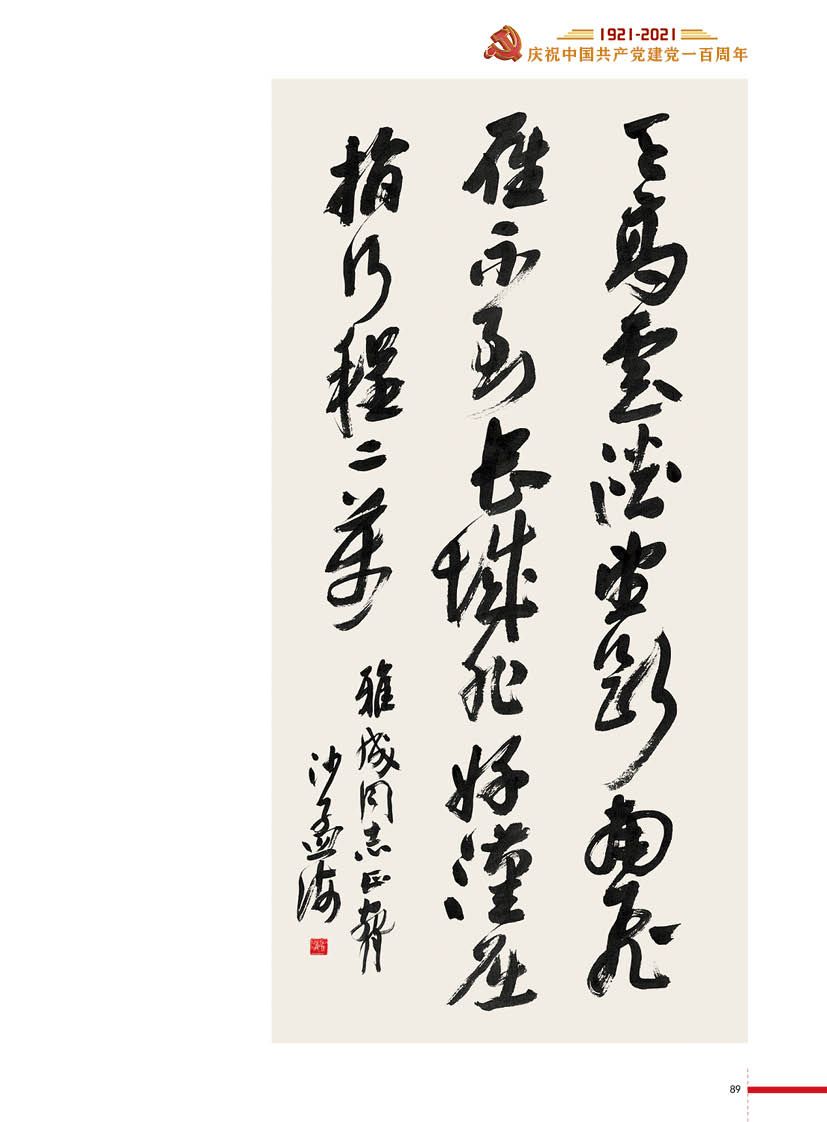 1921-2021
庆祝中国共产党建党一百周年
天高雲淡望斷南飛
雁不到長城非好漢屈
指行程二萬
雅成同志正彀
沙孟海
89